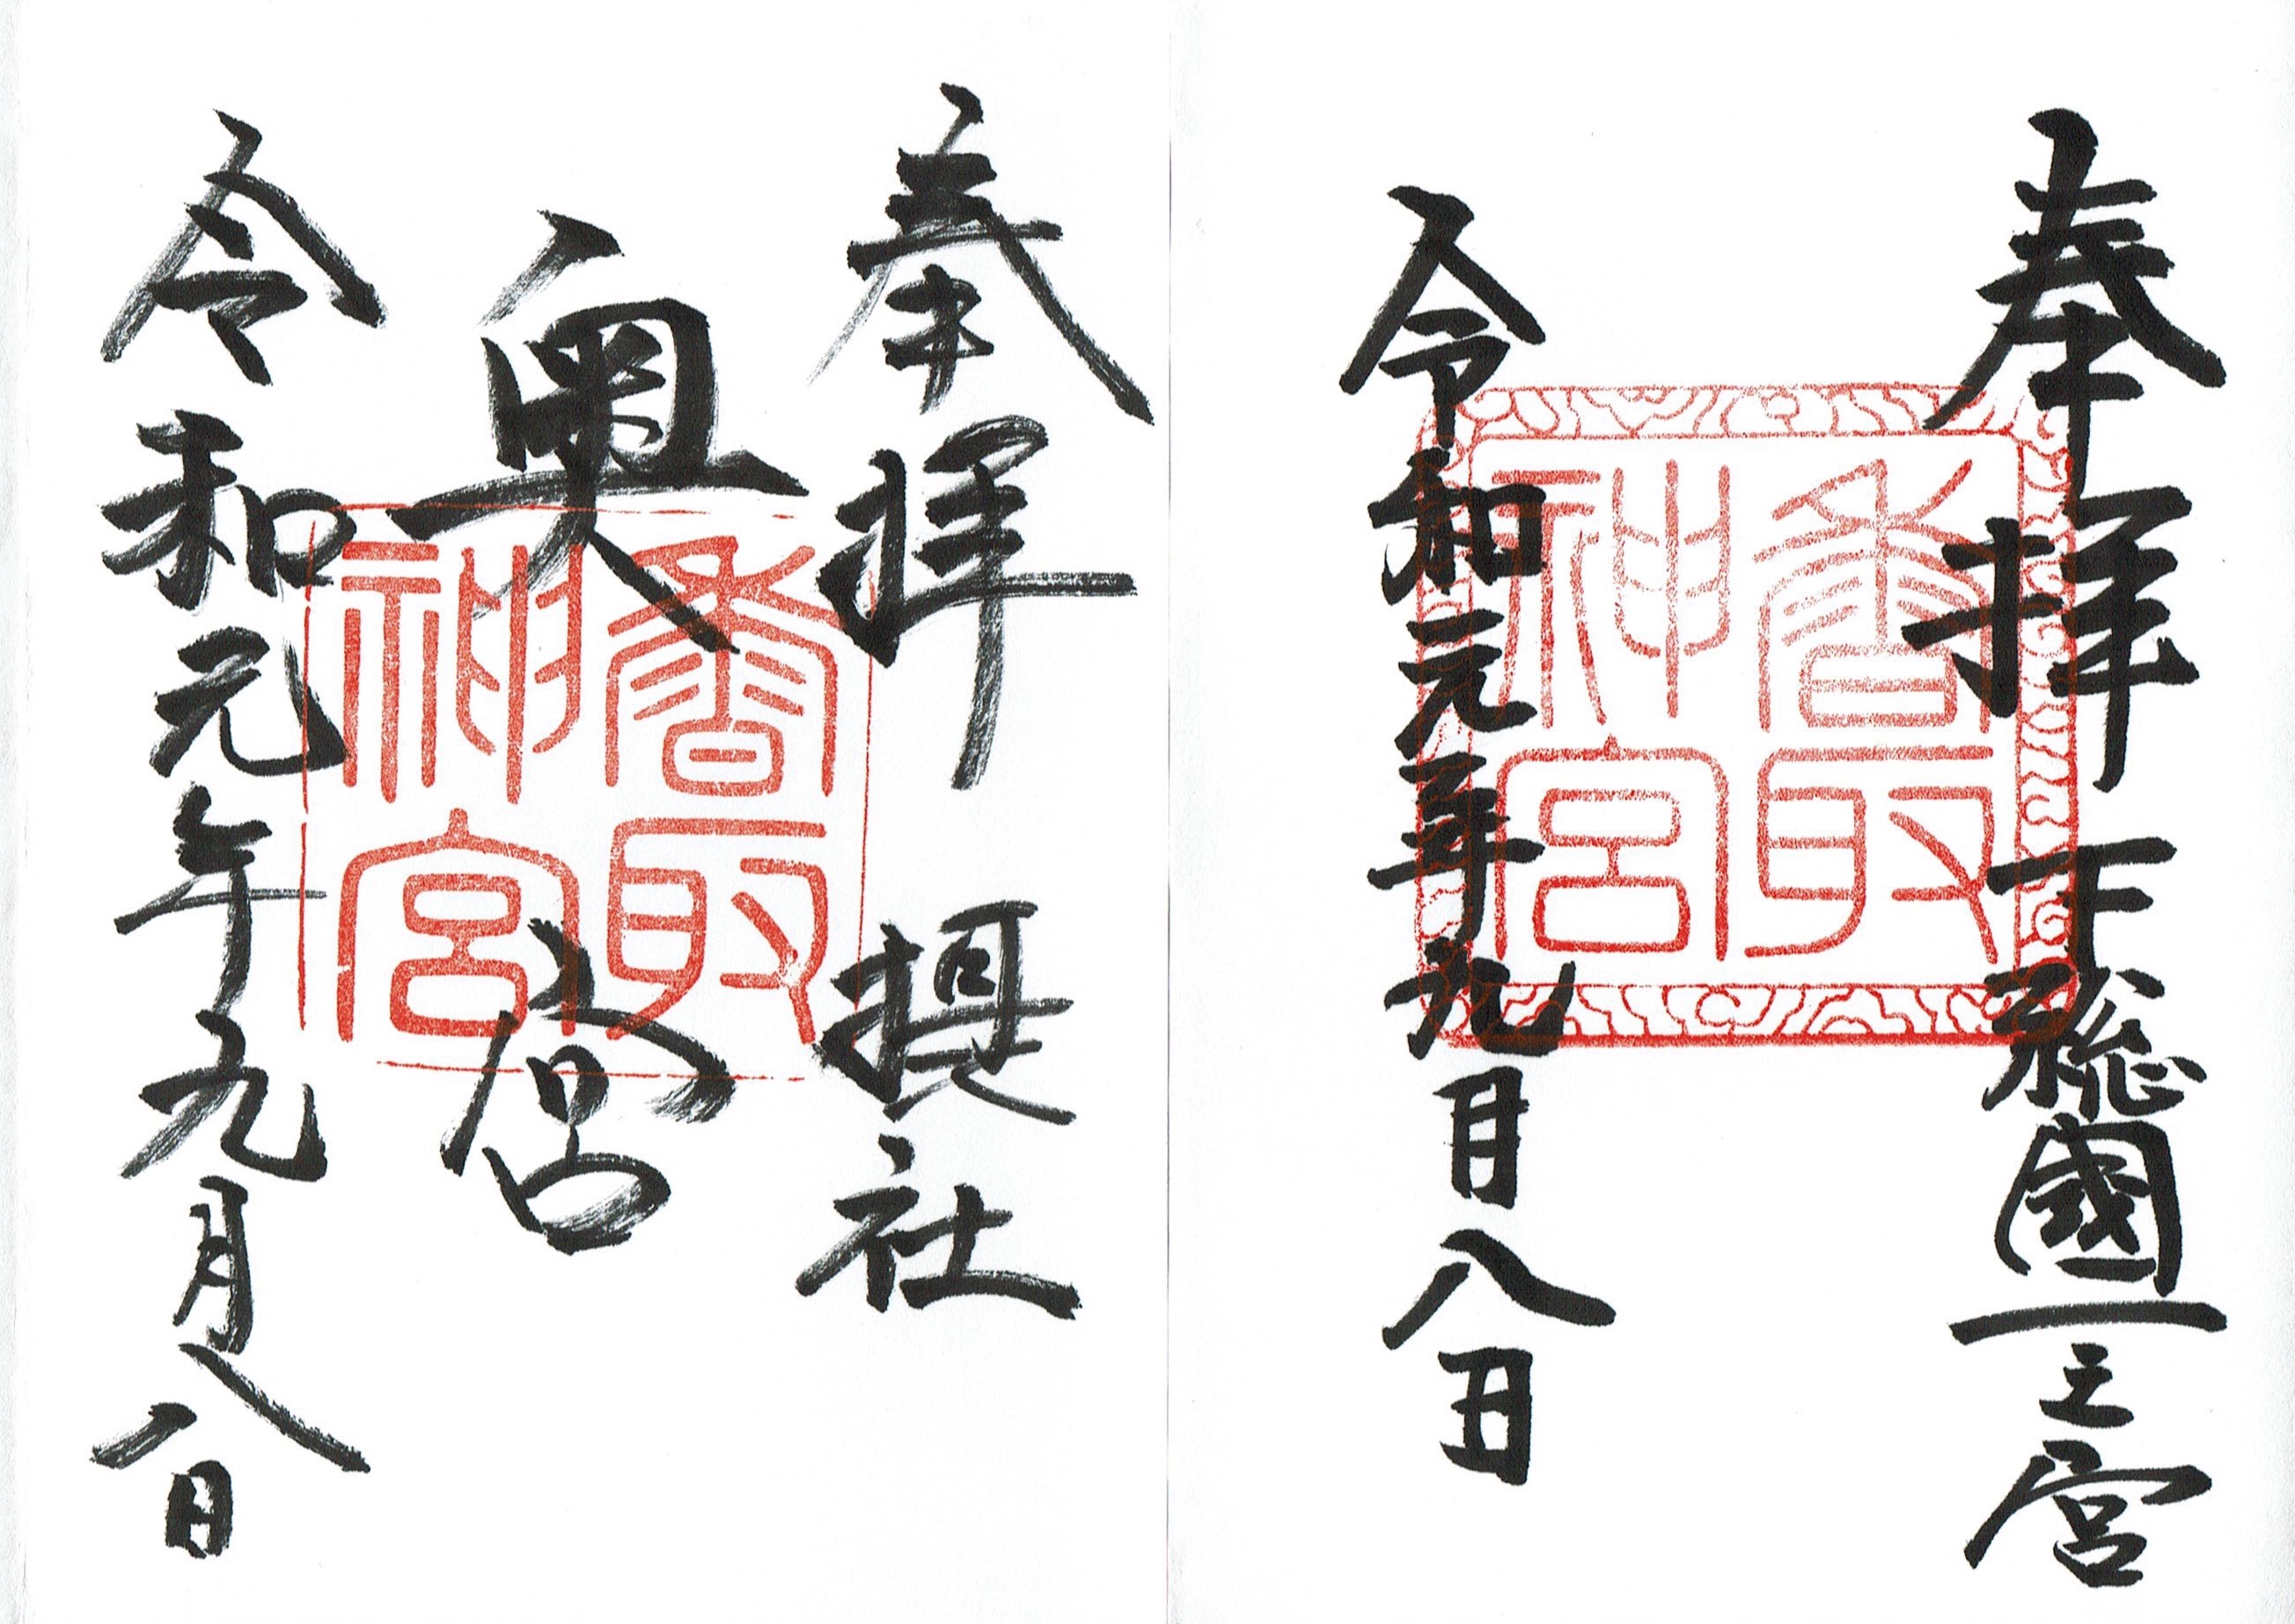 奉拝 下総國一之宮
香取
神宮
令和元年九月八日
奉拝 摂社
奥宮
香取
神宮
令和元年九月八日